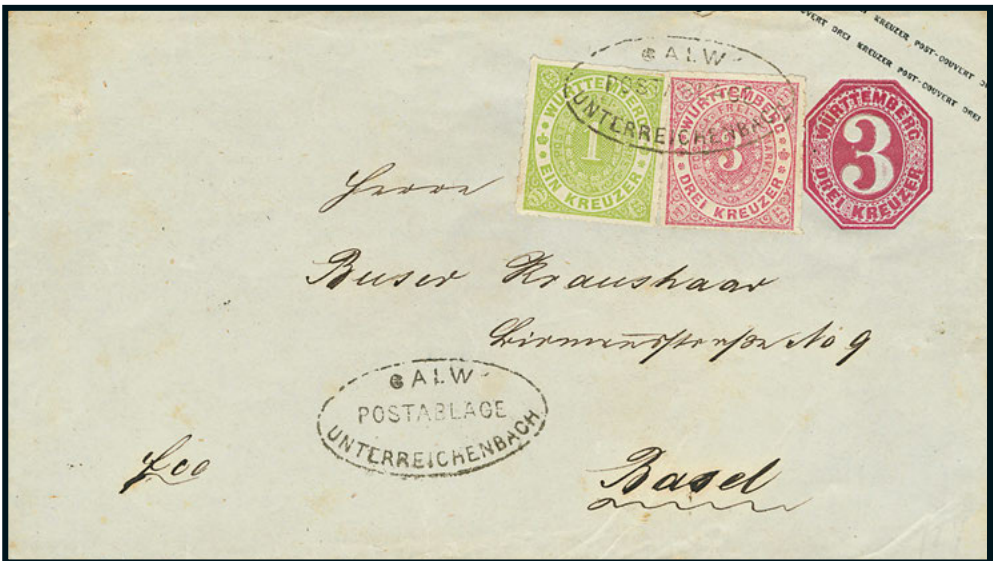 VERT DREI KREUZER POST-COUVERT D
DREI KREUZER POST-COUVERT DREI
CALW
POSTABLAGE
UNTERREICHENBACH
WÜRTTEMBERG
1
EIN KREUZER
WÜRTTEMBERG
FREIMARKE
3
DREI KREUZER
WÜRTTEMBERG
3
DREI KREUZER
Herrn
Buser Kraushaar
No 9
CALW
POSTABLAGE
UNTERREICHENBACH
fco
Basel